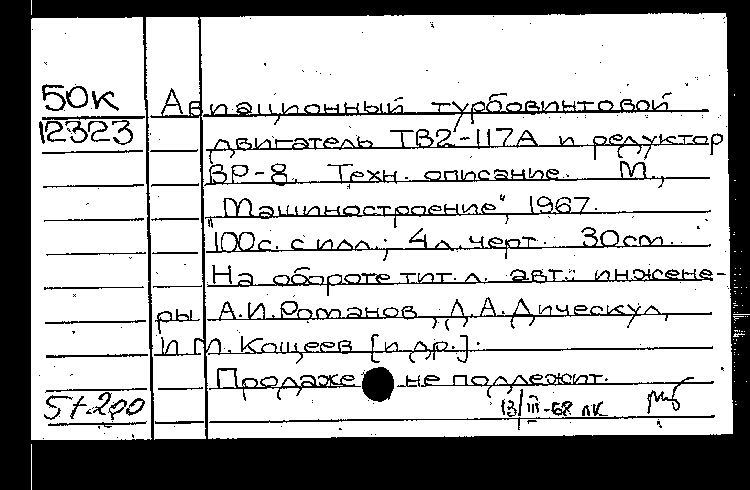 50к Авиационный турбовинтовой
12323 двигатель ТВ2-117А и редуктор
ВР-8. Техн. описание. М.,
"Машиностроение", 1967.
100с. с илл.; 4л. черт. 30см.
На обороте тит. л. авт.: инжене-
ры А.И.Романов, Д.А.Дическул,
И.М.Кощеев [и др.].
Продаже не подлежит.
51-200 13/III-68 ЛК